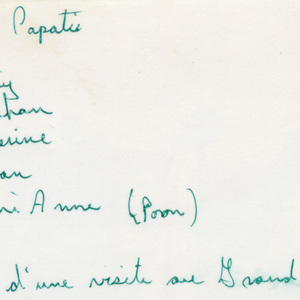 Papatie
y
han
erine
an
ie Anne (Poon)
d'une visite au Grand